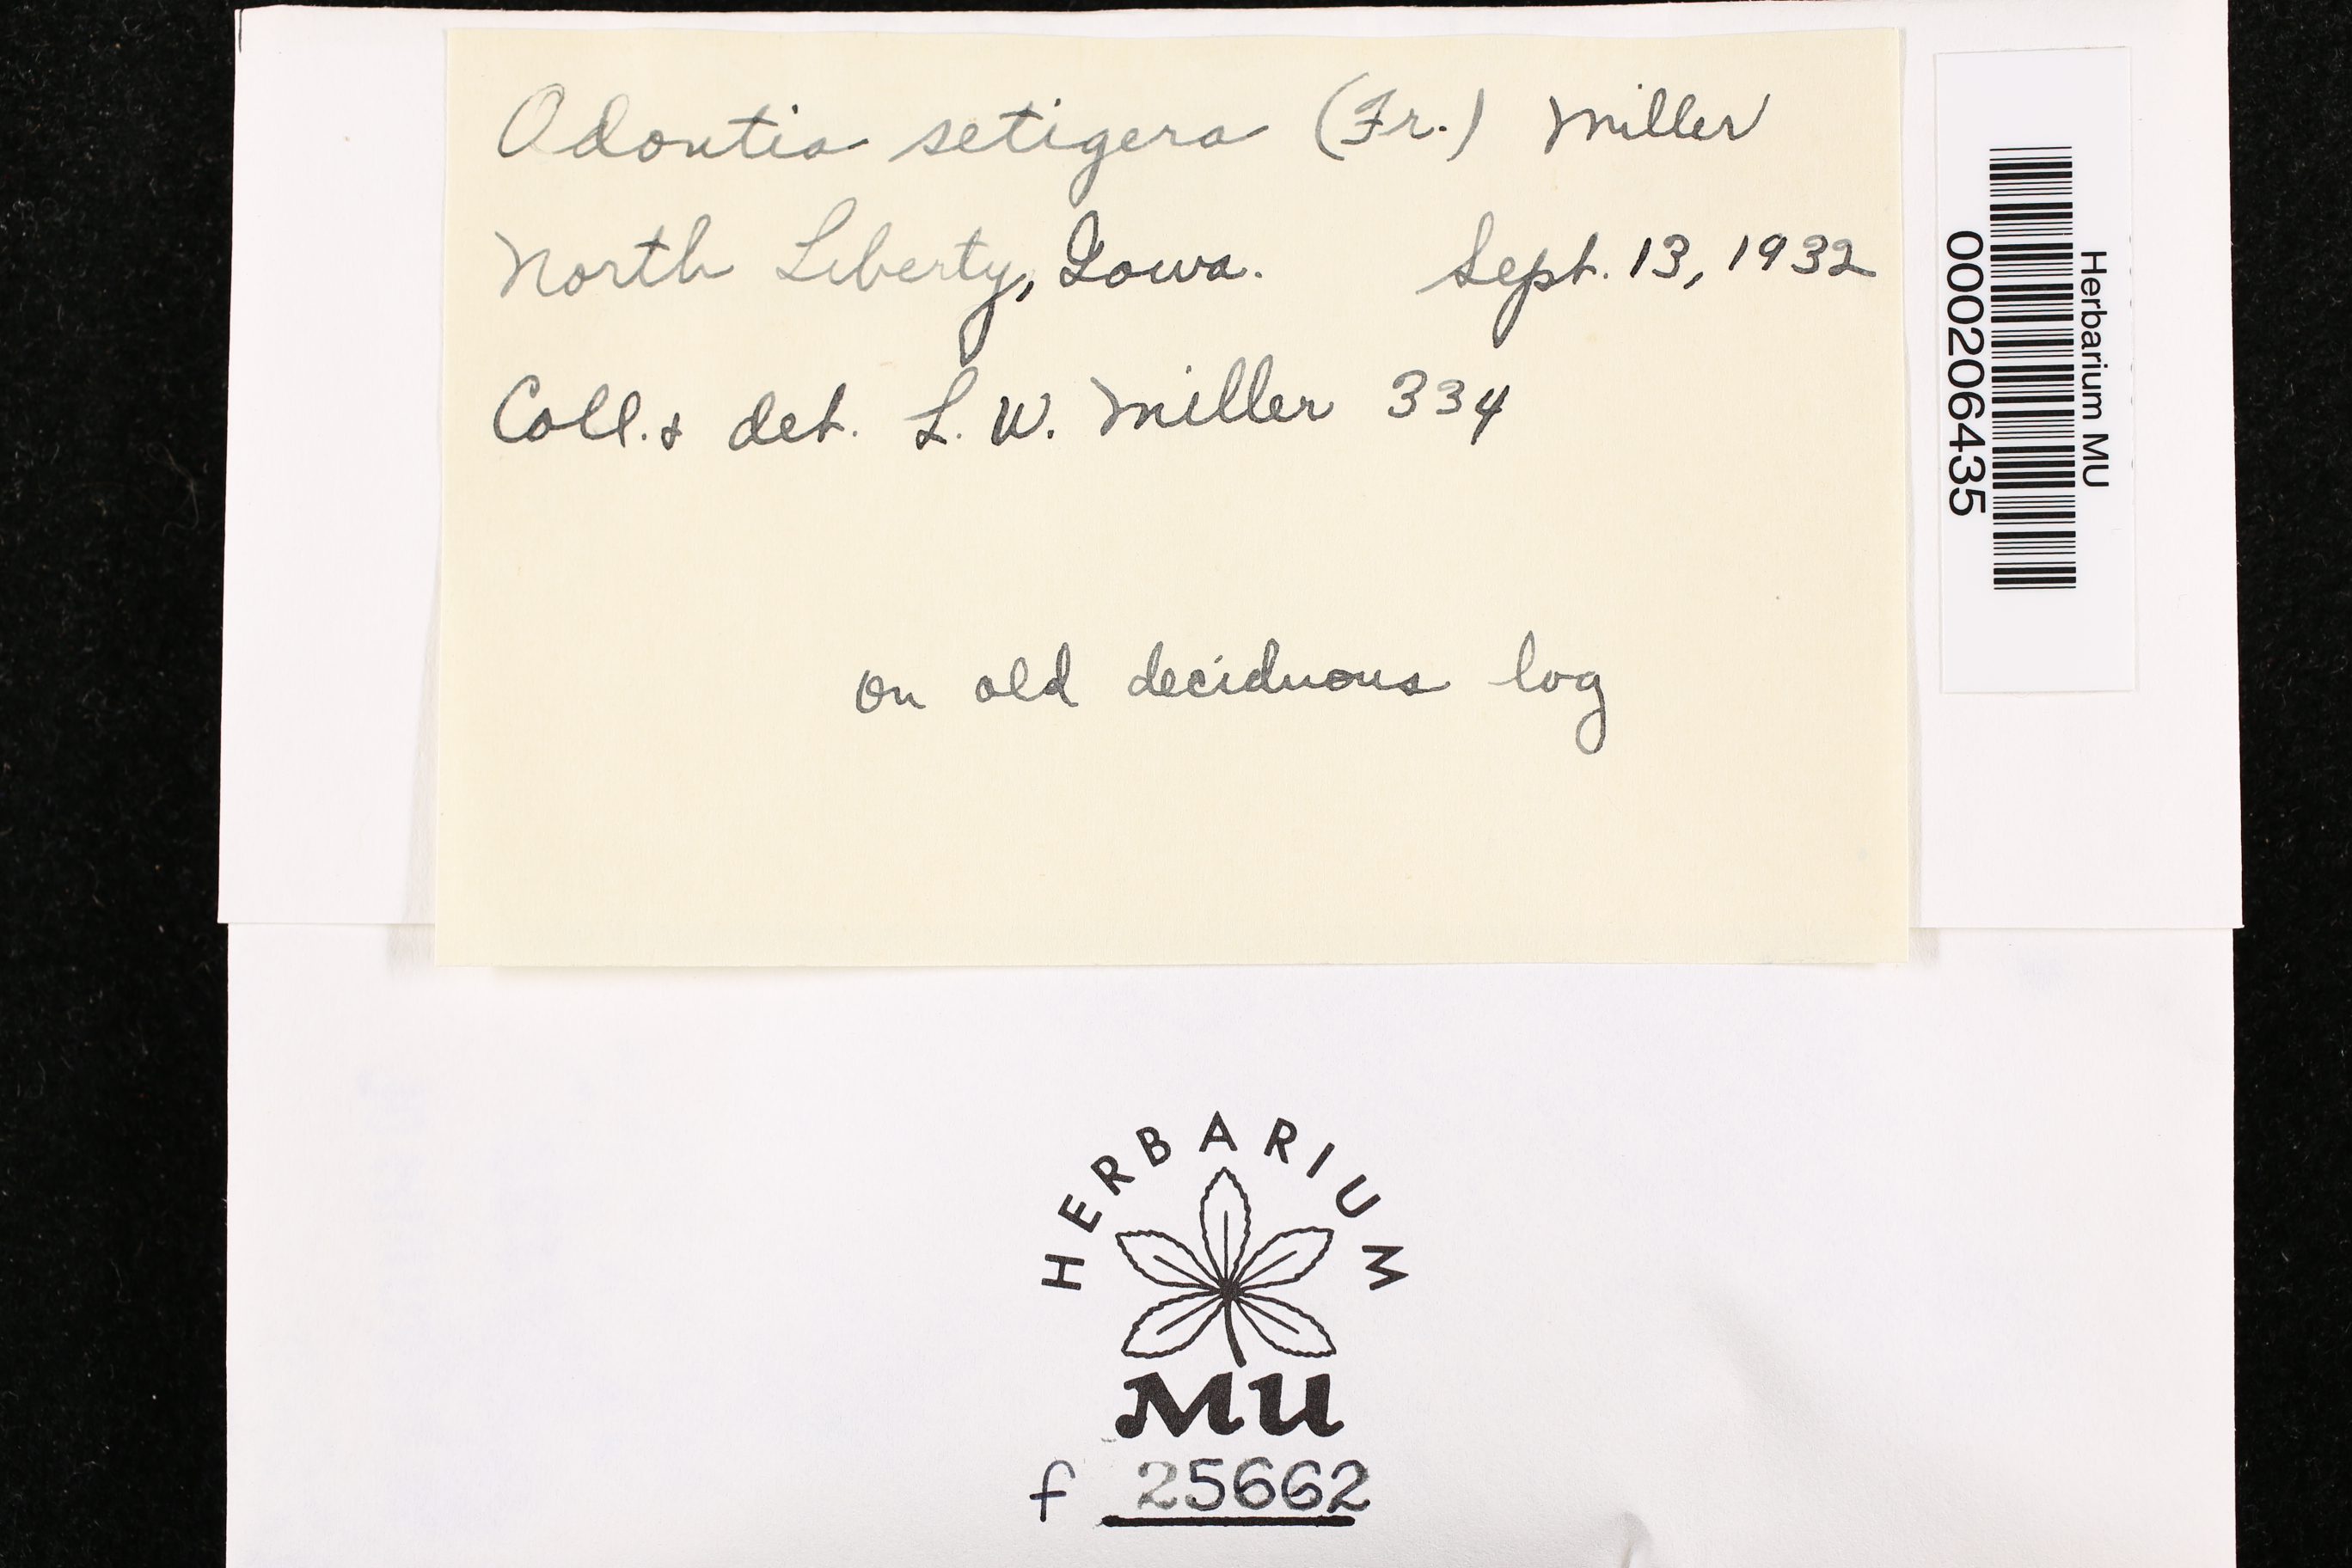 Odontia setigera (Fr.) Miller
North Liberty, Iowa. Sept. 13, 1932
Coll. & det. L. W. Miller 334
on old deciduous log
Herbarium MU
000206435
HERBARIUM
MU
f 25662